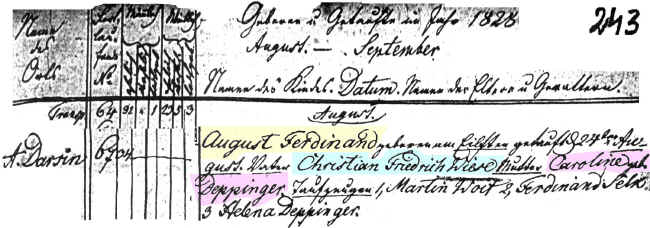 Name des Orts
Fort laufende No
Geborene u Getaufte im Jahr 1828
243
August. — September.
Namen des Kindes. Datum. Namen der Eltern u Gevattern.
Transp 64 31 1 3
August.
A. Darsin
August Ferdinand geboren am Eilften getauft d 24ten Au-
gust. Vater Christian Friedrich Wiese Mutter Caroline geb
Deppinger. Taufzeugen 1, Martin Woit 2, Ferdinand Selk
3 Helena Deppinger.